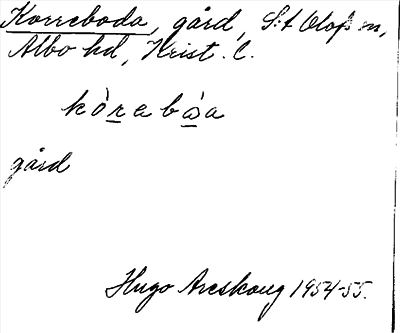 Korreboda, gård, S:t Olofs sn,
Albo hd, Krist. l.
kòrebὼa
gård
Hugo Areskoug 1954-55.